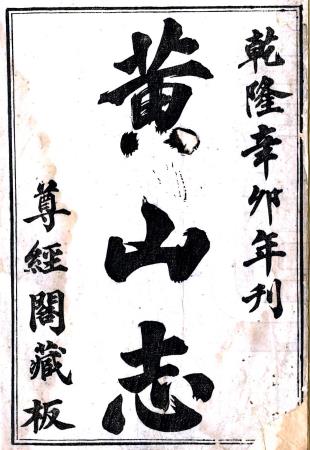 乾隆辛卯年刊
黄山志
尊經閣藏板